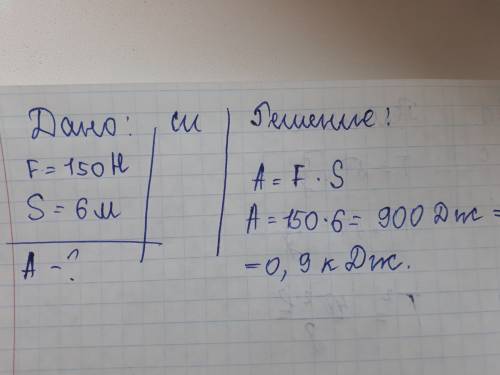 Дано:
F = 150 Н
S = 6 м
А - ?
си
Решение:
A = F · S
A = 150 · 6 = 900 Дж =
= 0,9 кДж.